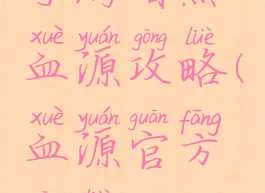 xuè yuán gōng lüè
血源攻略(
xuè yuán guān fāng
血源官方